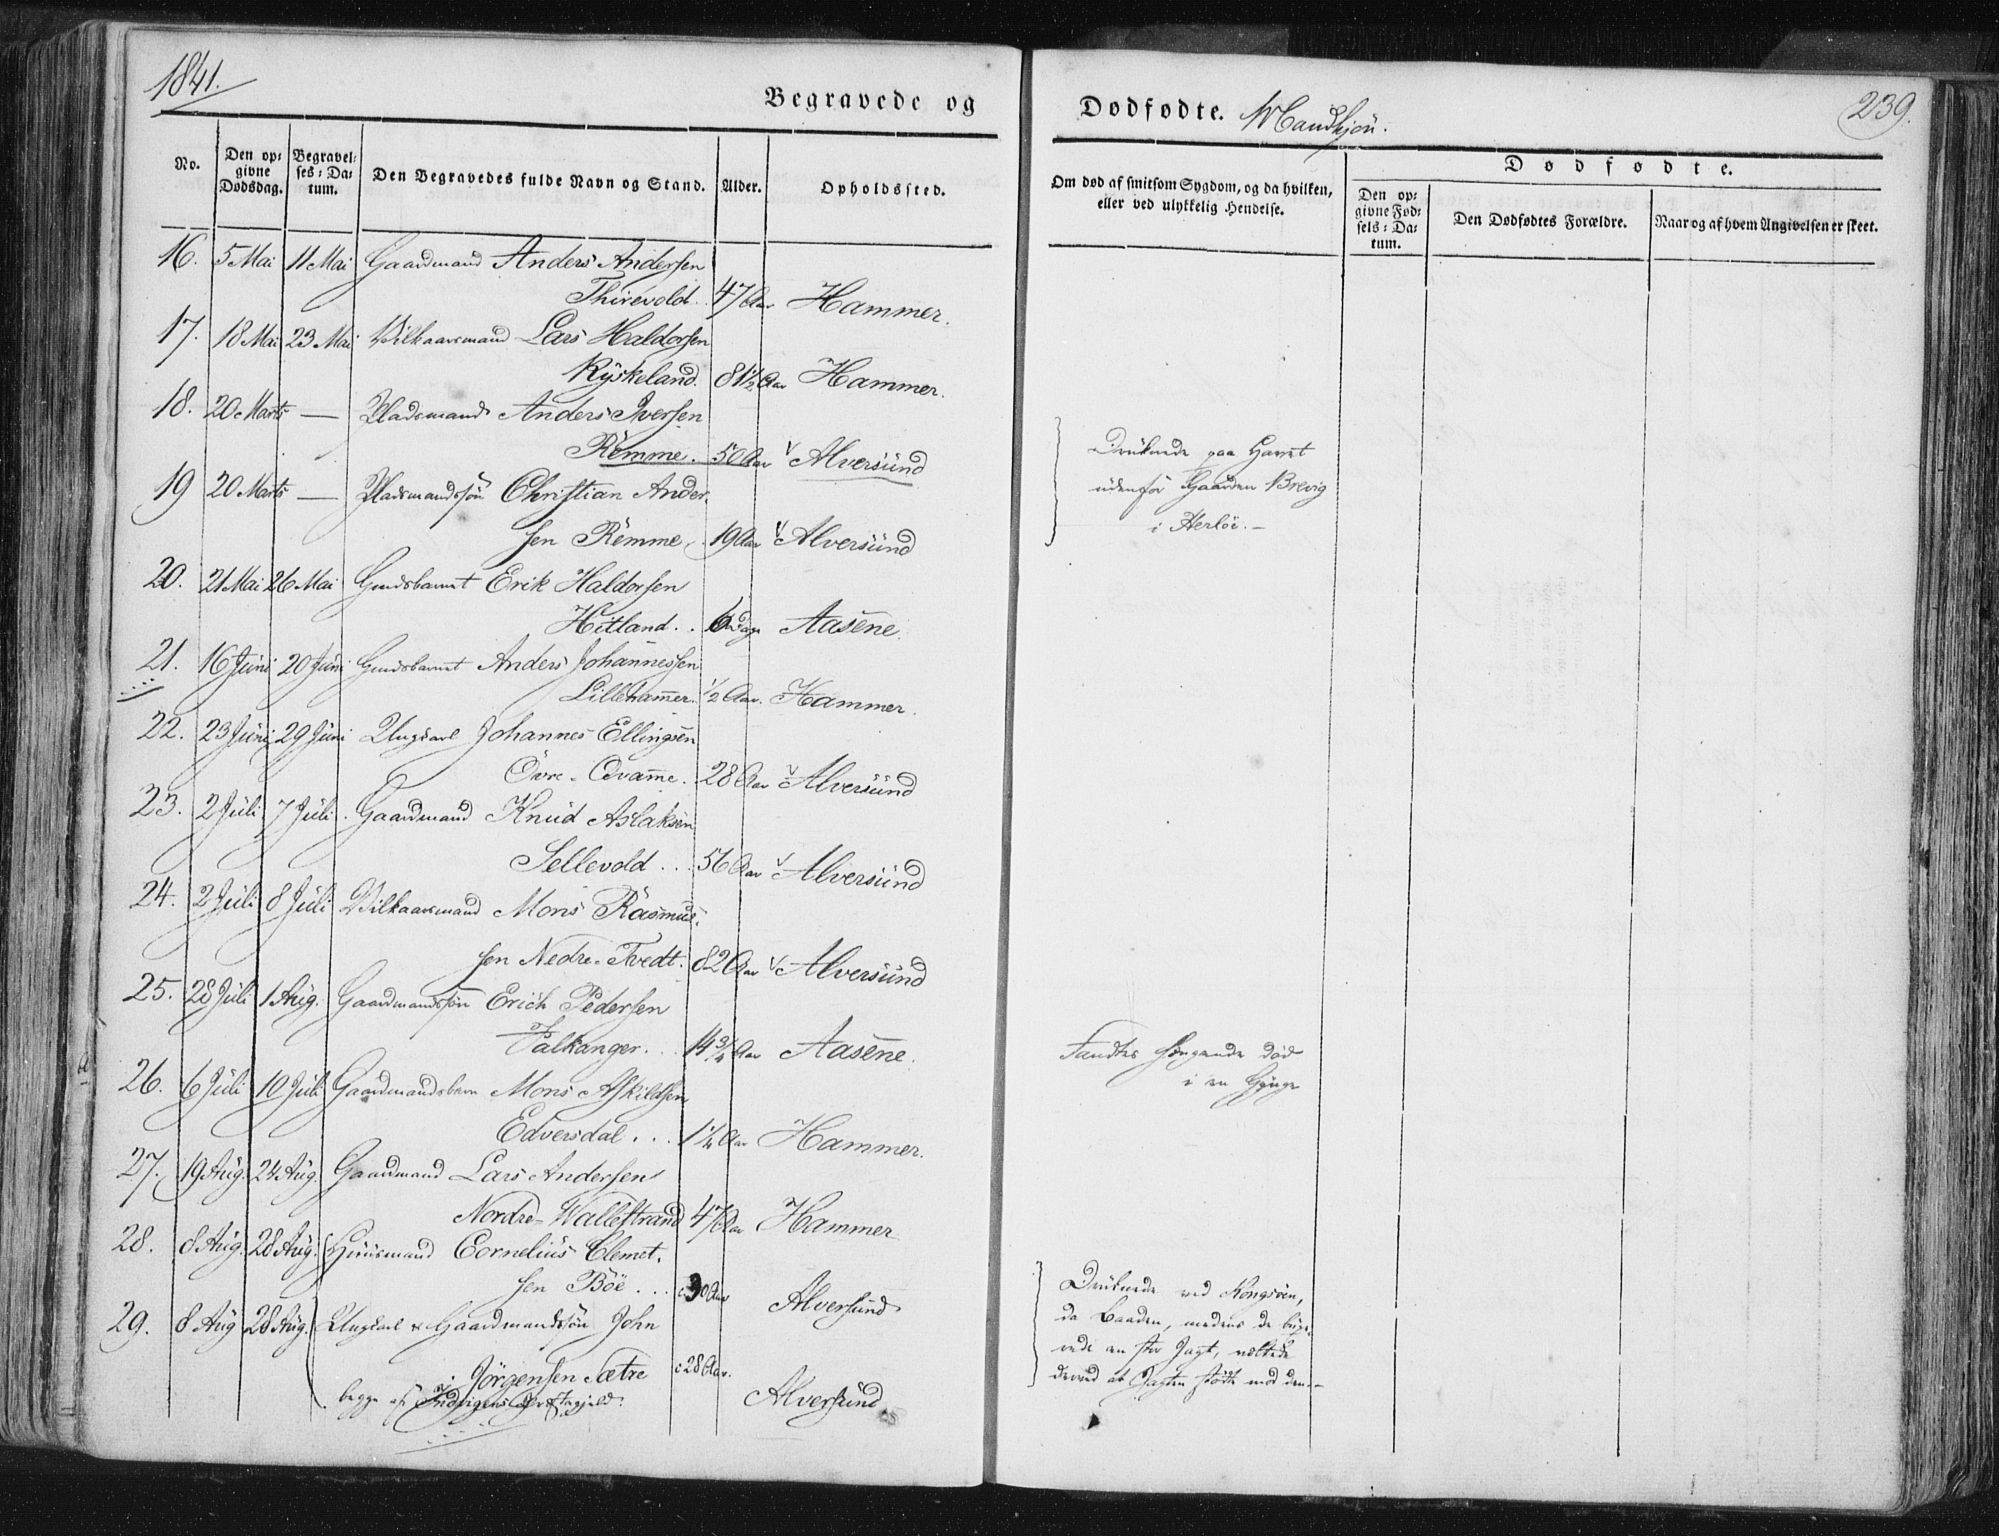 1841.
Begravede og
Dødfødte. Mandkjøn.
239.
No.
Den op-
givne
Dødsdag.
Begravel-
ses-Da-
tum.
Den Begravedes fulde Navn og Stand.
Alder.
Opholdssted.
Om død af smitsom Sygdom, og da hvilken,
eller ved ulykkelig Hendelse.
Dødfødte.
Den op-
givne Fød-
sels-Da-
tum.
Den Dødfødtes Forældre.
Naar og af hvem Angivelsen er skeet.
16. 5 Mai 11 Mai Gaardmand Anders Andersen
Thirevold. 47 Aar Hammer.
17. 18 Mai 23 Mai Vilkaarsmand Lars Haldorsen
Ryskeland. 81½ Aar Hammer.
18. 20 Marts — Pladsmand Anders Iversen
Remme. 50 Aar v Alversund
Druknede paa Havet
udenfor Gaarden Brevig
i Herløe. —
19 20 Marts — Pladsmandssøn Christian Ander-
sen Remme. 19 Aar v Alversund
20. 21 Mai 26 Mai Gmdsbarnet Erik Haldorsen
Hitland. . 6 Dage Aasene.
21. 16 Juni 20 Juni Gmdsbarnet Anders Johannessen
Lillehammer. ½ Aar. Hammer.
22. 23 Juni 29 Juni Ungkarl Johannes Ellingsen
Övre- Qvamme. 28 Aar v Alversund
23. 2 Juli 7 Juli. Gaardmand Knud Aslaksen
Sellevold . . . 56 Aar v Alversund
24. 2 Juli 8 Juli Vilkaarsmand Mons Rasmus-
sen Nedre-Tvedt. 82 Aar v Alversund
25. 28 Juli 1 Aug. Gaardmandssøn Erich Pedersen
Falkanger. . . 14 ¾ Aar Aasene.
Fandtes hængende død
i en Gynge
26. 6 Juli 10 Juli Gaardmandsbarn Mons Askildsen
Edversdal. . . 1¼ Aar Hammer.
27. 19 Aug. 24 Aug. Gaardmand Lars Andersen
Nordre-Wallestrand 47 Aar Hammer
28. 8 Aug. 28 Aug. Huusmand Cornelius Clemet-
sen Böe . . . c 30 Aar Alversund
Druknede ved Kongsöen,
da Baaden, medens de
en stor Jagt, væltede
derved at Jagten stødte mod den.—
29. 8 Aug 28 Aug. Ungkarl v Gaardmandssøn John
Jörgensen Sætre c 28 Aar.
begge af Indvigens Præstegjeld. Alversund